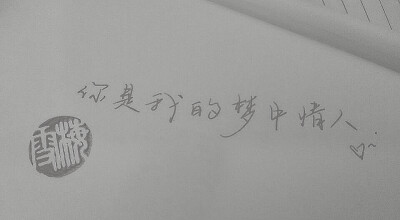 你是我的梦中情人
雪梅